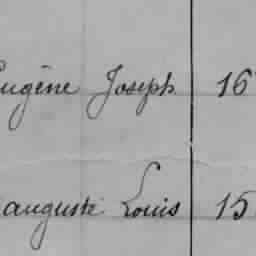 Eugène Joseph 16
auguste Louis 15